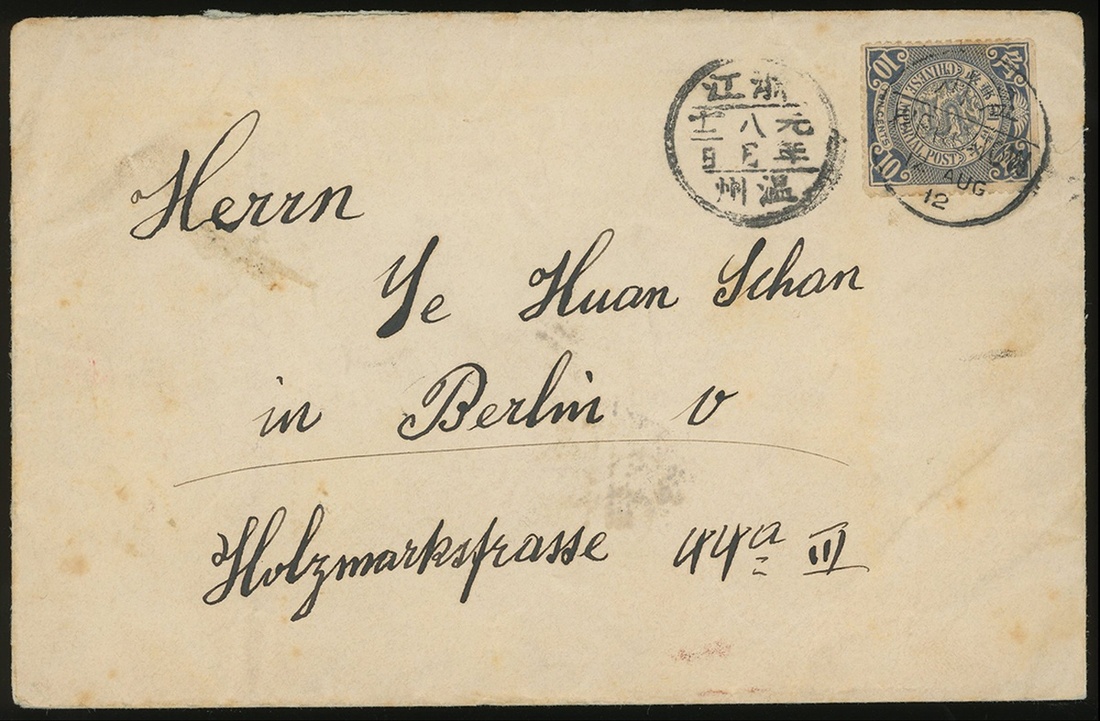 浙江
元年
八月
十二日
溫州
10 CHINESE IMPERIAL POST 10
AUG
12
Herrn
Ye Huan Schan
in Berlin O
Holzmarkstrasse 44a III